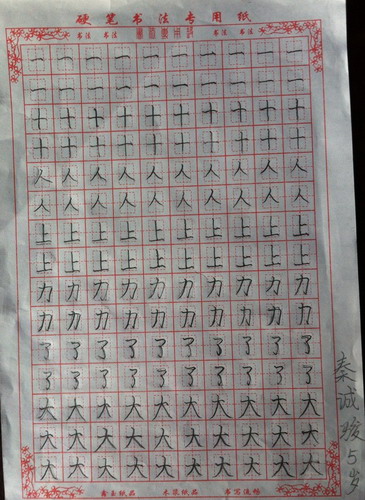 硬笔书法专用纸
书法 书法 书法 书法
一 一 一 一 一 一 一 一 一 一
一 一 一 一 一 一 一 一 一 一
十 十 十 十 十 十 十 十 十 十
十 十 十 十 十 十 十 十 十 十
人 人 人 人 人 人 人 人 人 人
人 人 人 人 人 人 人 人 人 人
上 上 上 上 上 上 上 上 上 上
上 上 上 上 上 上 上 上 上 上
力 力 力 力 力 力 力 力 力 力
力 力 力 力 力 力 力 力 力 力
了 了 了 了 了 了 了 了 了 了
了 了 了 了 了 了 了 了 了 了
大 大 大 大 大 大 大 大 大 大
大 大 大 大 大 大 大 大 大 大
大 大 大 大 大 大 大 大 大 大
秦诚骏5岁
纸品 纸品 书写流畅